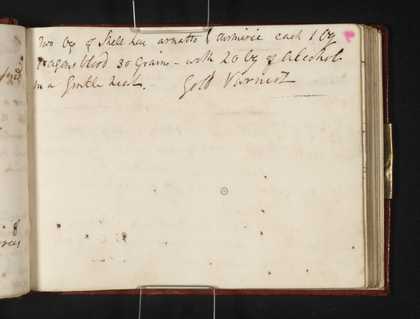 Two oz of Shell Lac arnatto & turmeric each 1 oz
Dragons blood 30 Grains - with 20 oz of Alcohol
in a Gentle heat. Gold Varnish